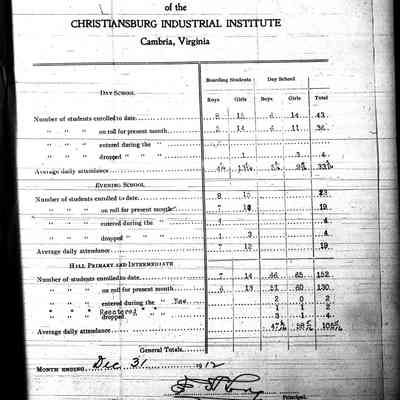 of the
CHRISTIANSBURG INDUSTRIAL INSTITUTE
Cambria, Virginia
Boarding Students Day School
DAY SCHOOL Boys Girls Boys Girls Total
Number of students enrolled to date 8 15 6 14 43
" " " on roll for present month 14 6 11 36
" " " entered during the "
" " " dropped " " 1 3 4
Average daily attendance
EVENING SCHOOL
Number of students enrolled to date 8 15 23
" " " on roll for present month 7 12 19
" " " entered during the " 4 4
" " " dropped " " 1 3 4
Average daily attendance 7 12 19
HILL PRIMARY AND INTERMEDIATE
Number of students enrolled to date 7 14 66 65 152
" " " on roll for present month 6 13 51 60 130
" " " entered during the " New 2 0 2
" " " Restored " " 1 1 2
dropped 3 1 4
Average daily attendance
General Totals
MONTH ENDING, Dec 31 1912
Principal.